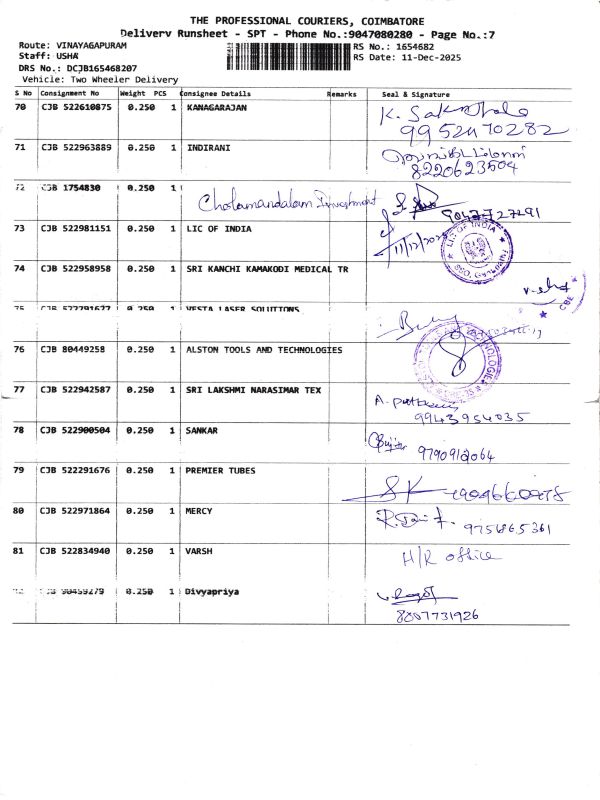 THE PROFESSIONAL COURIERS, COIMBATORE
Delivery Runsheet - SPT - Phone No.:9047080280 - Page No.:7
Route: VINAYAGAPURAM RS No.: 1654682
Staff: USHA RS Date: 11-Dec-2025
DRS No.: DCJB165468207
Vehicle: Two Wheeler Delivery
S No Consignment No Weight PCS Consignee Details Remarks Seal & Signature
70 CJB 522610875 0.250 1 KANAGARAJAN K.
9952470282
71 CJB 522963889 0.250 1 INDIRANI
8220623504
72 CJB 1754830 0.250 1 Cholamandalam Investment
73 CJB 522981151 0.250 1 LIC OF INDIA 11/12/2025 LIC OF INDIA
74 CJB 522958958 0.250 1 SRI KANCHI KAMAKODI MEDICAL TR
CBE
75 0.250 1 VESTA LASER SOLUTIONS
76 CJB 80449258 0.250 1 ALSTON TOOLS AND TECHNOLOGIES
77 CJB 522942587 0.250 1 SRI LAKSHMI NARASIMAR TEX A.
9943954035
78 CJB 522900504 0.250 1 SANKAR 9790912064
79 CJB 522291676 0.250 1 PREMIER TUBES SK
80 CJB 522971864 0.250 1 MERCY 9756865361
81 CJB 522834940 0.250 1 VARSH H/R office
CJB 90459279 0.250 1 Divyapriya
8807731926